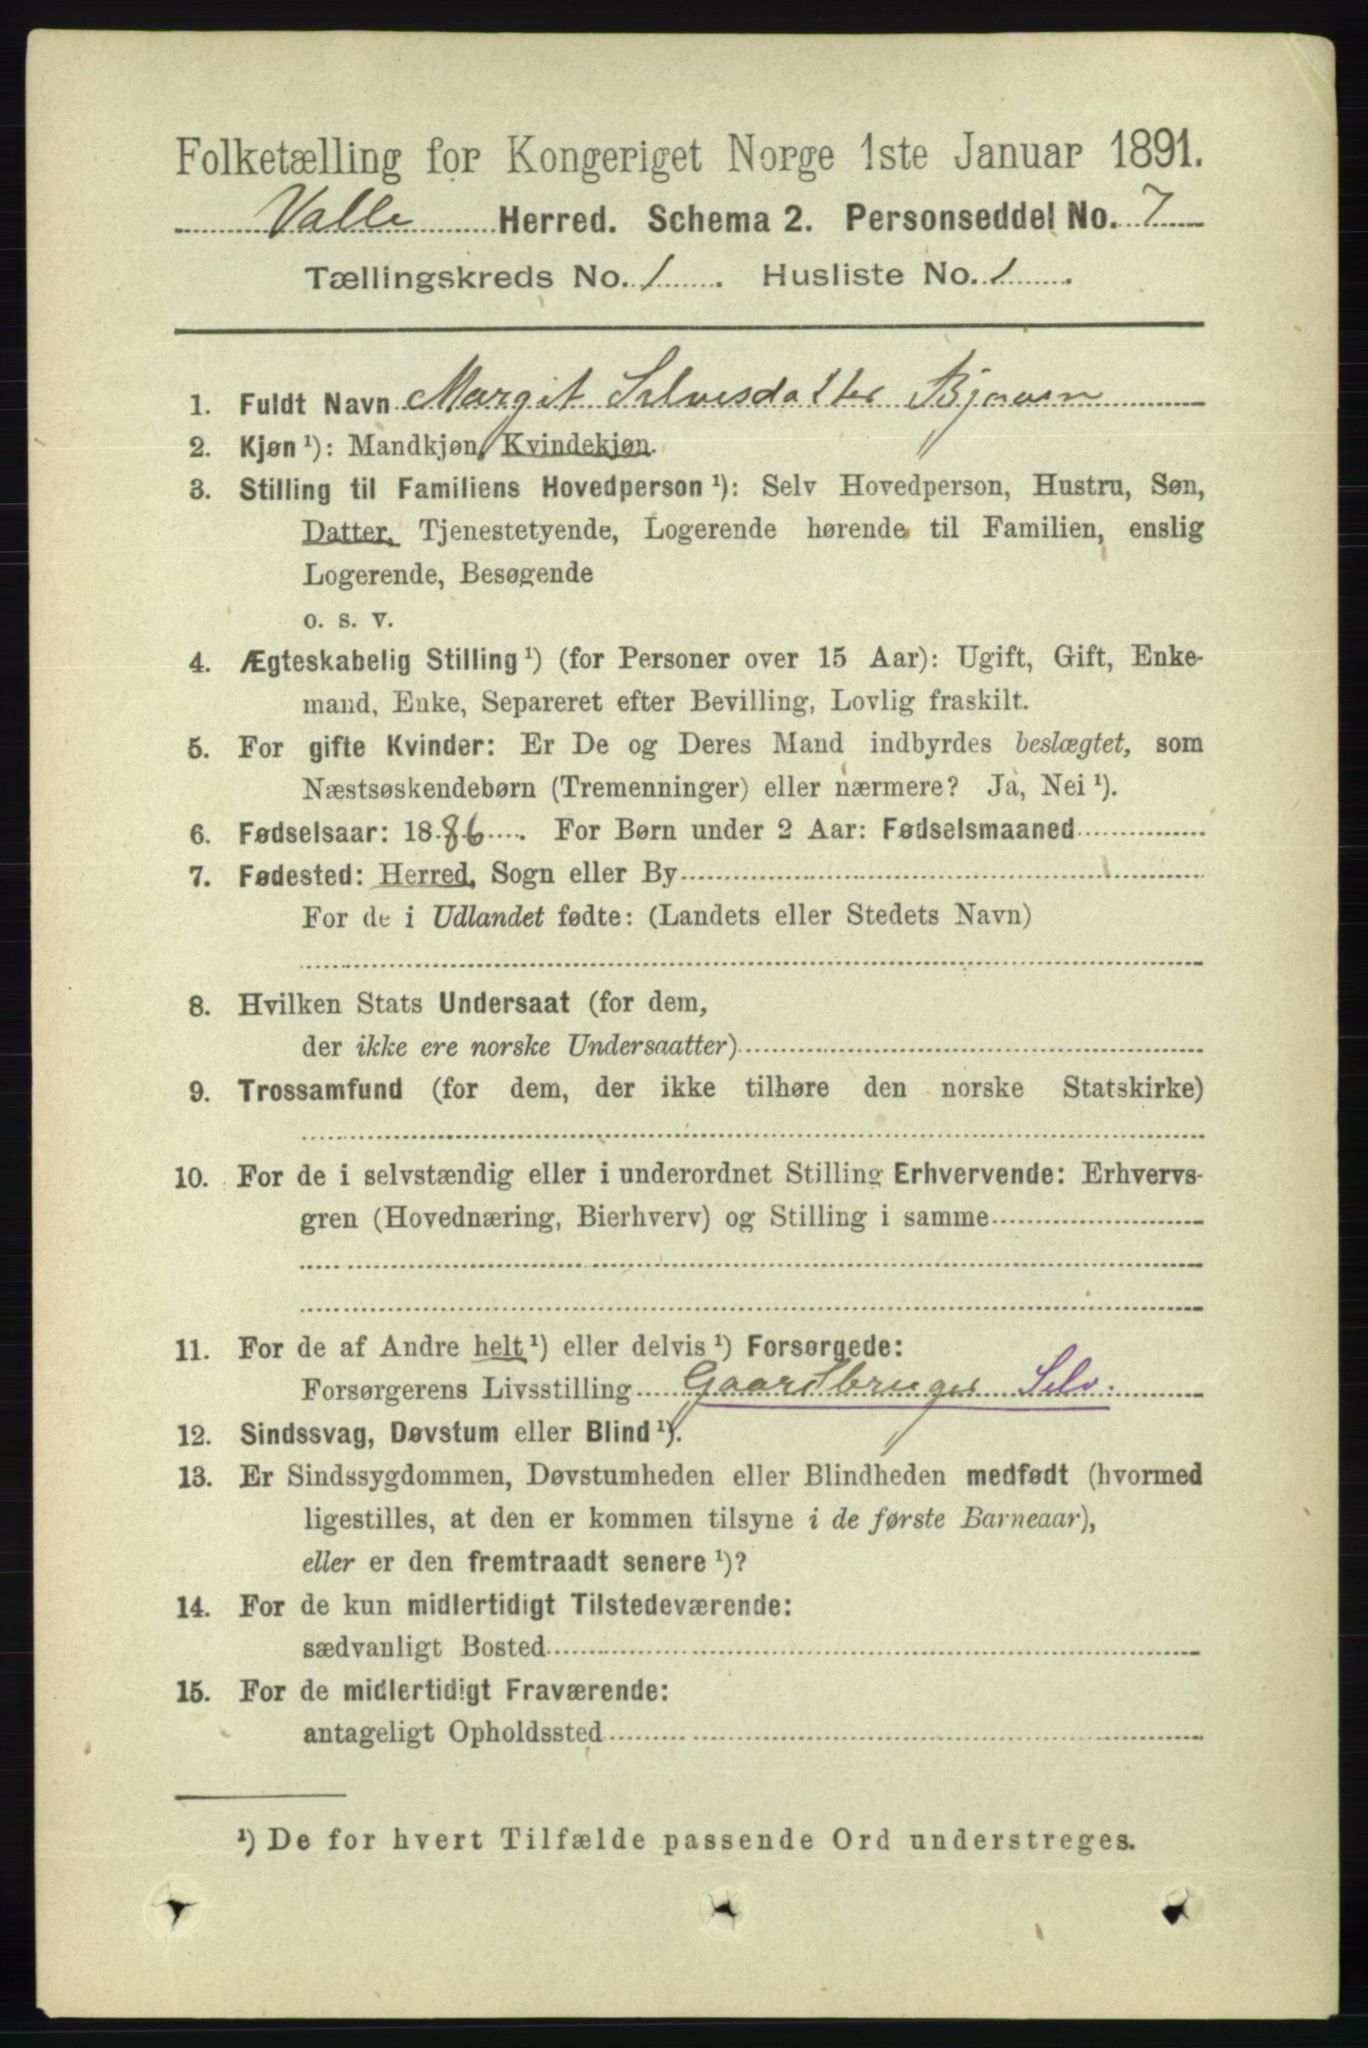 Folketælling for Kongeriget Norge 1ste Januar 1891.
Valle Herred. Schema 2. Personseddel No. 7
Tællingskreds No. 1. Husliste No. 1.
1. Fuldt Navn Margit Salvesdatter
2. Kjøn ¹): Mandkjøn, Kvindekjøn.
3. Stilling til Familiens Hovedperson ¹): Selv Hovedperson, Hustru, Søn,
Datter, Tjenestetyende, Logerende hørende til Familien, enslig
Logerende, Besøgende
o. s. v.
4. Ægteskabelig Stilling ¹) (for Personer over 15 Aar): Ugift, Gift, Enke-
mand, Enke, Separeret efter Bevilling, Lovlig fraskilt.
5. For gifte Kvinder: Er De og Deres Mand indbyrdes beslægtet, som
Næstsøskendebørn (Tremenninger) eller nærmere? Ja, Nei ¹).
6. Fødselsaar: 1886. For Børn under 2 Aar: Fødselsmaaned
7. Fødested: Herred, Sogn eller By
For de i Udlandet fødte: (Landets eller Stedets Navn)
8. Hvilken Stats Undersaat (for dem,
der ikke ere norske Undersaatter)
9. Trossamfund (for dem, der ikke tilhøre den norske Statskirke)
10. For de i selvstændig eller i underordnet Stilling Erhvervende: Erhvervs-
gren (Hovednæring, Bierhverv) og Stilling i samme
11. For de af Andre helt ¹) eller delvis ¹) Forsørgede:
Forsørgerens Livsstilling Gaardbruger Selv.
12. Sindssvag, Døvstum eller Blind ¹).
13. Er Sindssygdommen, Døvstumheden eller Blindheden medfødt (hvormed
ligestilles, at den er kommen tilsyne i de første Barneaar),
eller er den fremtraadt senere ¹)?
14. For de kun midlertidigt Tilstedeværende:
sædvanligt Bosted
15. For de midlertidigt Fraværende:
antageligt Opholdssted
¹) De for hvert Tilfælde passende Ord understreges.